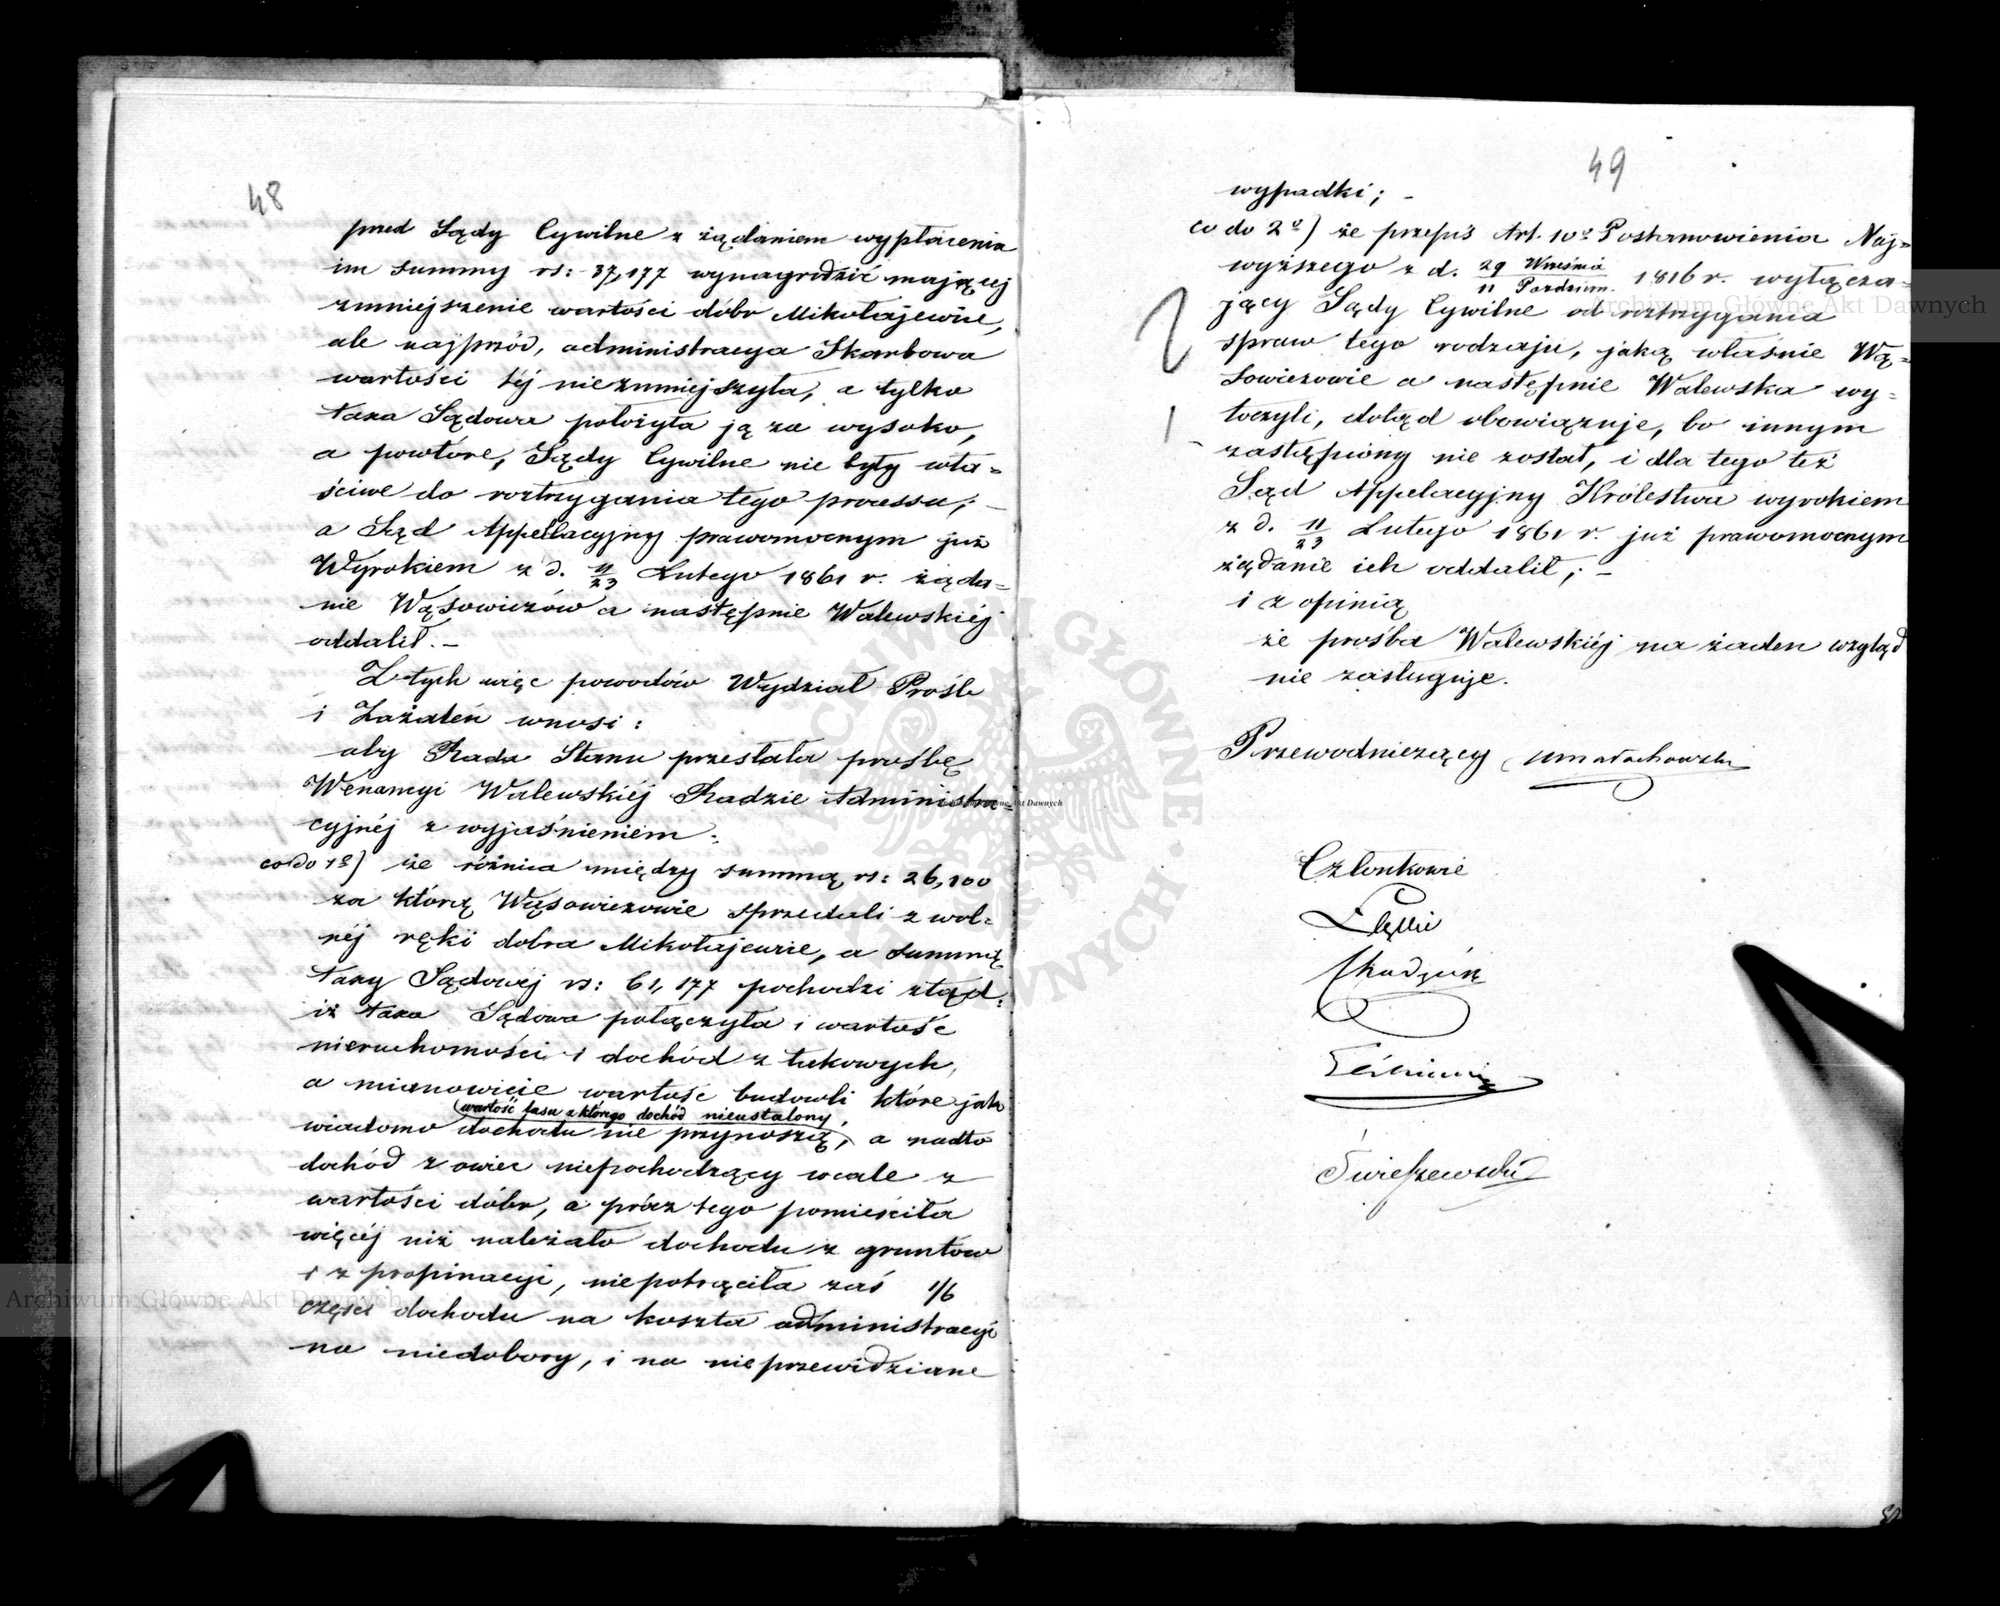 48
przed Sądy Cywilne z żądaniem wypłacenia
im summy rs: 37,177 wynagrodzić mającej
zmniejszenie wartości dóbr Mikołajewie,
ale najprzód, administracya Skarbowa
wartości téj niezmniejszyła, a tylko
taxa Sądowa położyła ją za wysoko,
a powtóre, Sądy Cywilne nie były wła-
ściwe do roztrzygania tego processu; –
a Sąd Appellacyjny prawomocnym już
Wyrokiem z d. 11/23 Lutego 1861 r. żąda-
nie Wąsowiczów a następnie Walewskiéj
oddalił. –
Z tych więc powodów Wydział Prośb
i Zażaleń wnosi:
aby Rada Stanu przesłała prośbę
Wenancyi Walewskiéj Radzie Administra-
cyjnéj z wyjaśnieniem:
co do 1º) że różnica między summą rs: 26,100
za którą Wąsowiczowie sprzedali z wol-
néj ręki dobra Mikołajewie, a summą
taxy Sądowéj rs: 61,177 pochodzi ztąd:
iż taxa Sądowa połączyła i wartość
nieruchomości i dochód z takowych,
a mianowicie wartość budowli które jak
wartość lasu z którego dochód nieustalony,
wiadomo dochodu nie przynoszą, a nadto
dochód z owiec niepochodzący wcale z
wartości dóbr, a prócz tego pomieściła
więcéj niż należało dochodu z gruntów
i z propinacyi, niepotrąciła zaś 1/6
części dochodu na koszta administracyi
na niedobory, i na nieprzewidziane
49
wypadki; –
co do 2º) że przepis Art. 10º Postanowienia Naj-
wyższego z d. 29 Września / 11 Paździer. 1816 r. wyłącza-
jący Sądy Cywilne od roztrzygania
spraw tego rodzaju, jaką właśnie Wą-
sowiczowie a następnie Walewska wy-
toczyli, dotąd obowiązuje, bo innym
zastąpiony nie został, i dla tego też
Sąd Appelacyjny Królestwa wyrokiem
z d. 11/23 Lutego 1861 r. już prawomocnym
żądanie ich oddalił; –
i z opinią
że prośba Walewskiéj na żaden wzgląd
nie zasługuje.
Przewodniczący
Członkowie
Archiwum Główne Akt Dawnych
Archiwum Główne Akt Dawnych
Archiwum Główne Akt Dawnych